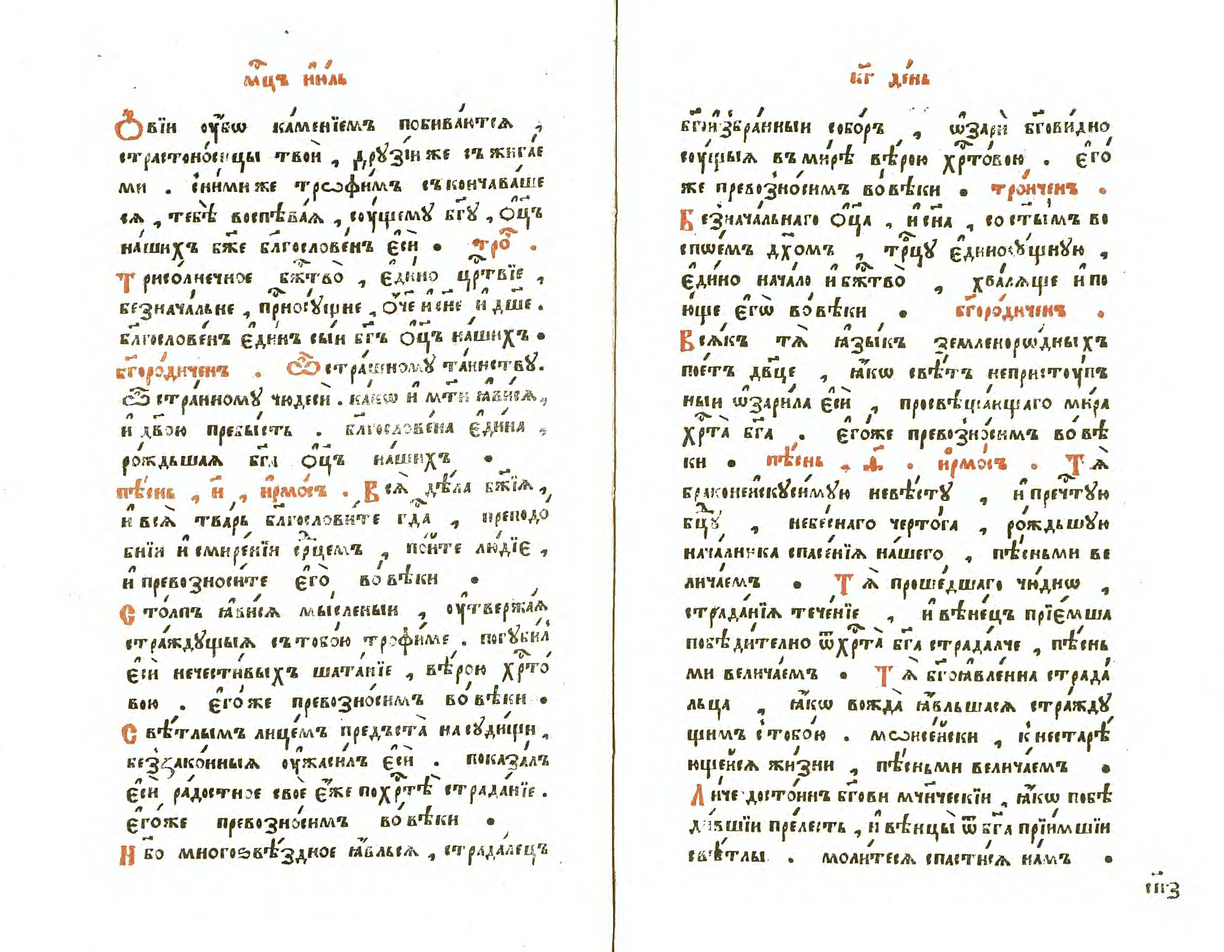 мⷭ҇цъ і҆ю́ль
Ѻ҆́вїи ᲂу҆́бѡ ка́менїемъ побива́ются ,
страстоно́сцы твоѝ , дрꙋзі́и же съжига́е
ми . сни́ми же трѡфи́мъ съконча́ваше
ся , тебѐ воспѣва́я , сꙋ́щемꙋ бг҃ꙋ , ѻ҆ц҃ъ
на́шихъ бж҃е блгⷭ҇ослове́нъ є҆сѝ . трⷪ҇ .
Трисо́лнечное бжⷭ҇тво̀ , є҆ди́но црⷭ҇твїе ,
безнача́льне , прⷭ҇носꙋ́щне , ѻ҆́ч҃е и҆ сн҃е и҆ дш҃е .
блгⷭ҇ослове́нъ є҆ди́нъ сы́и бг҃ъ ѻ҆ц҃ъ на́шихъ .
бг҃оро́диченъ . Ѽ стра́шномꙋ та́инствꙋ .
ѽ стра́нномꙋ чюдесѝ . ка́кѡ и҆ мт҃и ꙗ҆ви́ся ,
и҆ дв҃ою пребы́сть . блгⷭ҇ослове́на є҆ди́на ,
ро́ждьшая бг҃а ѻ҆ц҃ъ на́шихъ .
пѣ́снь , и҃ , і҆рмо́съ . Вся̀ дѣла̀ бж҃їя ,
и҆ вся̀ тва́рь блгⷭ҇ослови́те гдⷭ҇а , преподо́
бнїи и҆ смире́нїи срⷣцемъ , по́ите лю́дїе ,
и҆ превозноси́те є҆го̀ во вѣ́ки .
Сто́лпъ ꙗ҆ви́ся мы́сленыи , ᲂу҆твержа́я
стра́ждꙋщыя с тобо́ю трофи́ме . погꙋби́лъ
є҆сѝ нечести́выхъ шата́нїе , вѣ́рою хрⷭ҇то́
вою . є҆го́же превозно́симъ во вѣ́ки .
Свѣ́тлымъ лице́мъ предъста̀ на сꙋди́щи ,
беззако́нныя ᲂу҆жаси́лъ є҆сѝ . показа́лъ
є҆сѝ ра́достное своѐ є҆́же по хрⷭ҇тѣ̀ страда́нїе .
є҆го́же превозно́симъ во вѣ́ки .
Нб҃о многозвѣ́здное ꙗ҆вльься , страда́лецъ
кг҃ де́нь
бг҃ои҆збра́нныи собо́ръ , ѡ҆зарѝ бг҃ови́дно
сꙋ́щыя въ ми́рѣ вѣ́рою хрⷭ҇то́вою . є҆го́
же превозно́симъ во вѣ́ки . тро́иченъ .
Безнача́льнаго ѻ҆ц҃а , и҆ сн҃а , со ст҃ы́мъ во
спѡе́мъ дх҃омъ , трⷪ҇цꙋ є҆диносꙋ́щнꙋю ,
є҆ди́но нача́ло и҆ бжⷭ҇тво̀ , хва́ляще и҆ по
ю́ще є҆гѡ̀ во вѣ́ки . бг҃оро́диченъ .
Вся́къ тя̀ ꙗ҆зы́къ земленоро́дныхъ
пое́тъ дв҃це , ꙗ҆́кѡ свѣ́тъ непристꙋ́пъ
ныи ѡ҆зари́ла є҆сѝ , просвѣща́ющаго ми́ра
хрⷭ҇та̀ бг҃а . є҆го́же превозно́симъ во вѣ́
ки . пѣ́снь . ѳ҃ . і҆рмо́съ . Тя̀
браконеискꙋси́мꙋю невѣ́стꙋ , и҆ пречⷭ҇тꙋю
бцⷣꙋ , небе́снаго черто́га , ро́ждьшꙋю
нача́лника спасе́нїя на́шего , пѣ́сньми ве
лича́емъ . Тя̀ проше́дшаго чи́днѡ ,
страда́нїя тече́нїе , и҆ вѣне́цъ прїе́мша
побѣди́телно ѿ хрⷭ҇та̀ бг҃а страда́лче , пѣ́снь
ми велича́емъ . Тя̀ бг҃оꙗвле́нна страда́
льца , ꙗ҆́кѡ вожда̀ ꙗ҆́вльшася стра́ждꙋ
щимъ с тобо́ю . мѡисе́йски , к нестарѣ́
ющейся жи́зни , пѣ́сньми велича́емъ .
Ли́че досто́инъ бг҃ови мчⷭ҇нческїи , ꙗ҆́кѡ побѣ
ди́вшїи пре́лесть , и҆ вѣнцы̀ ѿ бг҃а прїи́мшїи
свѣ́тлы . моли́теся спасти́ся на́мъ .
сп҃з